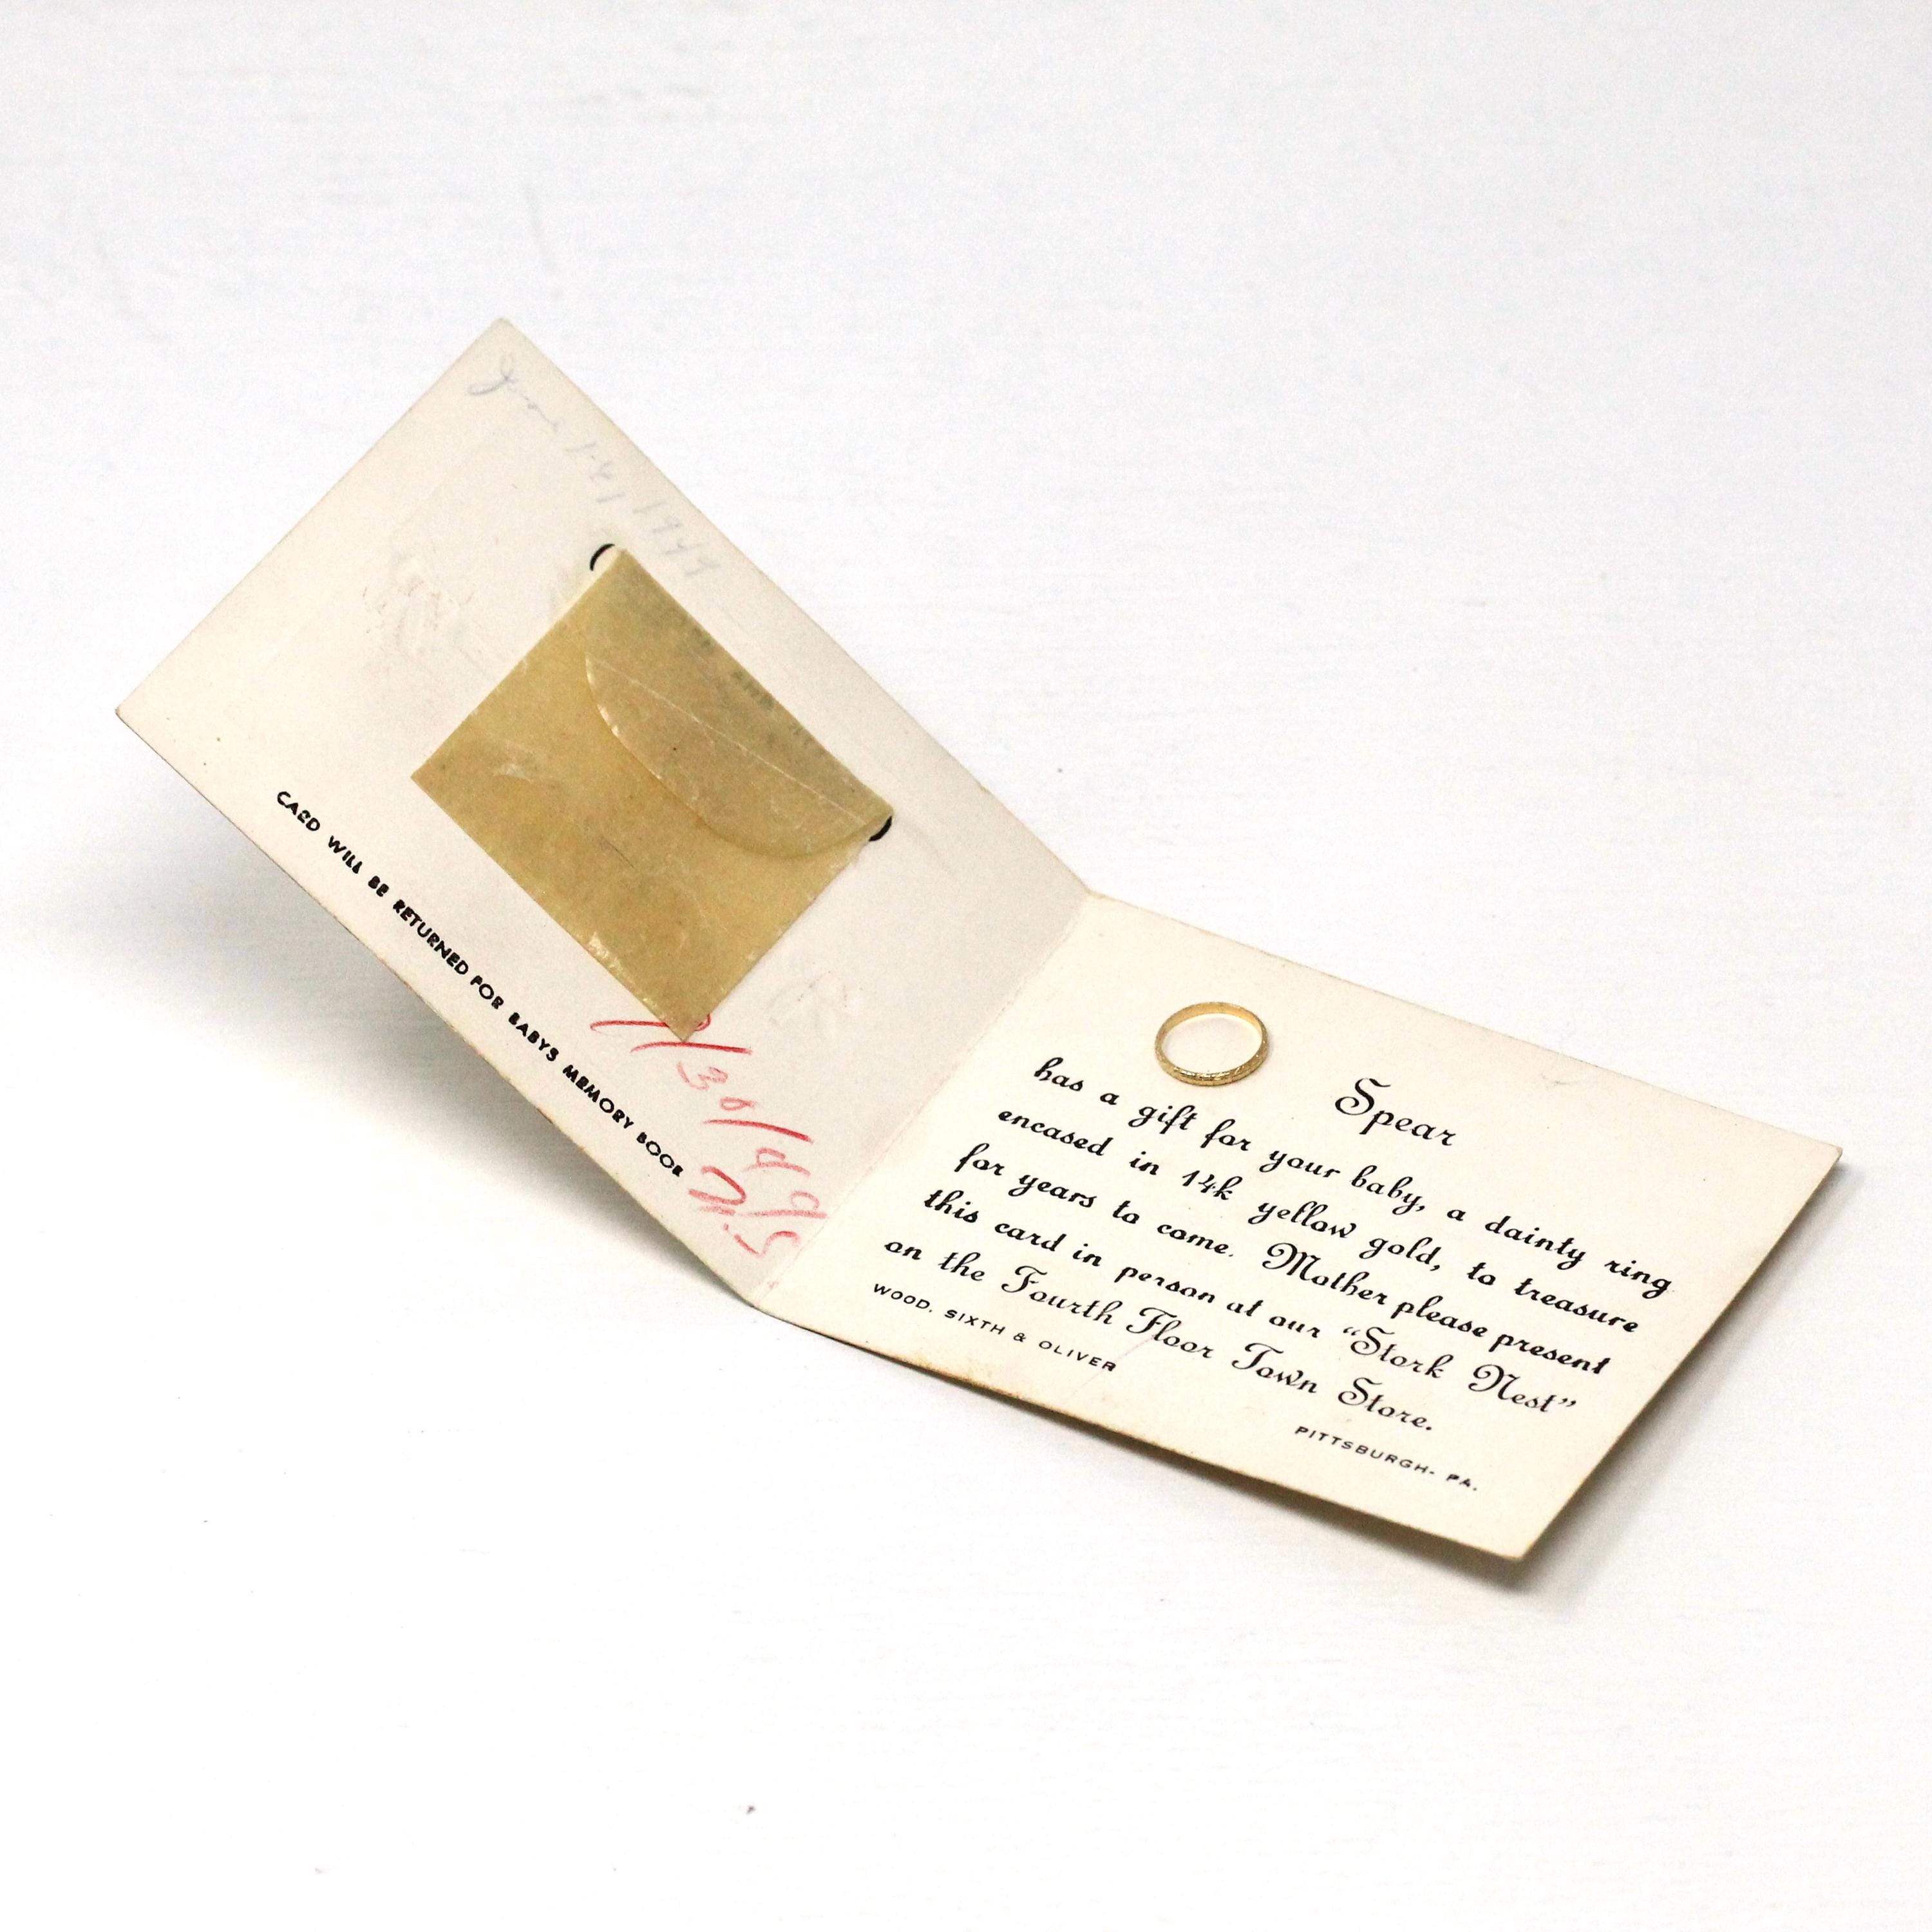 June 14, 1949
CARD WILL BE RETURNED FOR BABYS MEMORY BOOK
/30/49
Spear
has a gift for your baby, a dainty ring
encased in 14k yellow gold, to treasure
for years to come. Mother please present
this card in person at our “Stork Nest”
on the Fourth Floor Town Store.
WOOD, SIXTH & OLIVER
PITTSBURGH- PA.